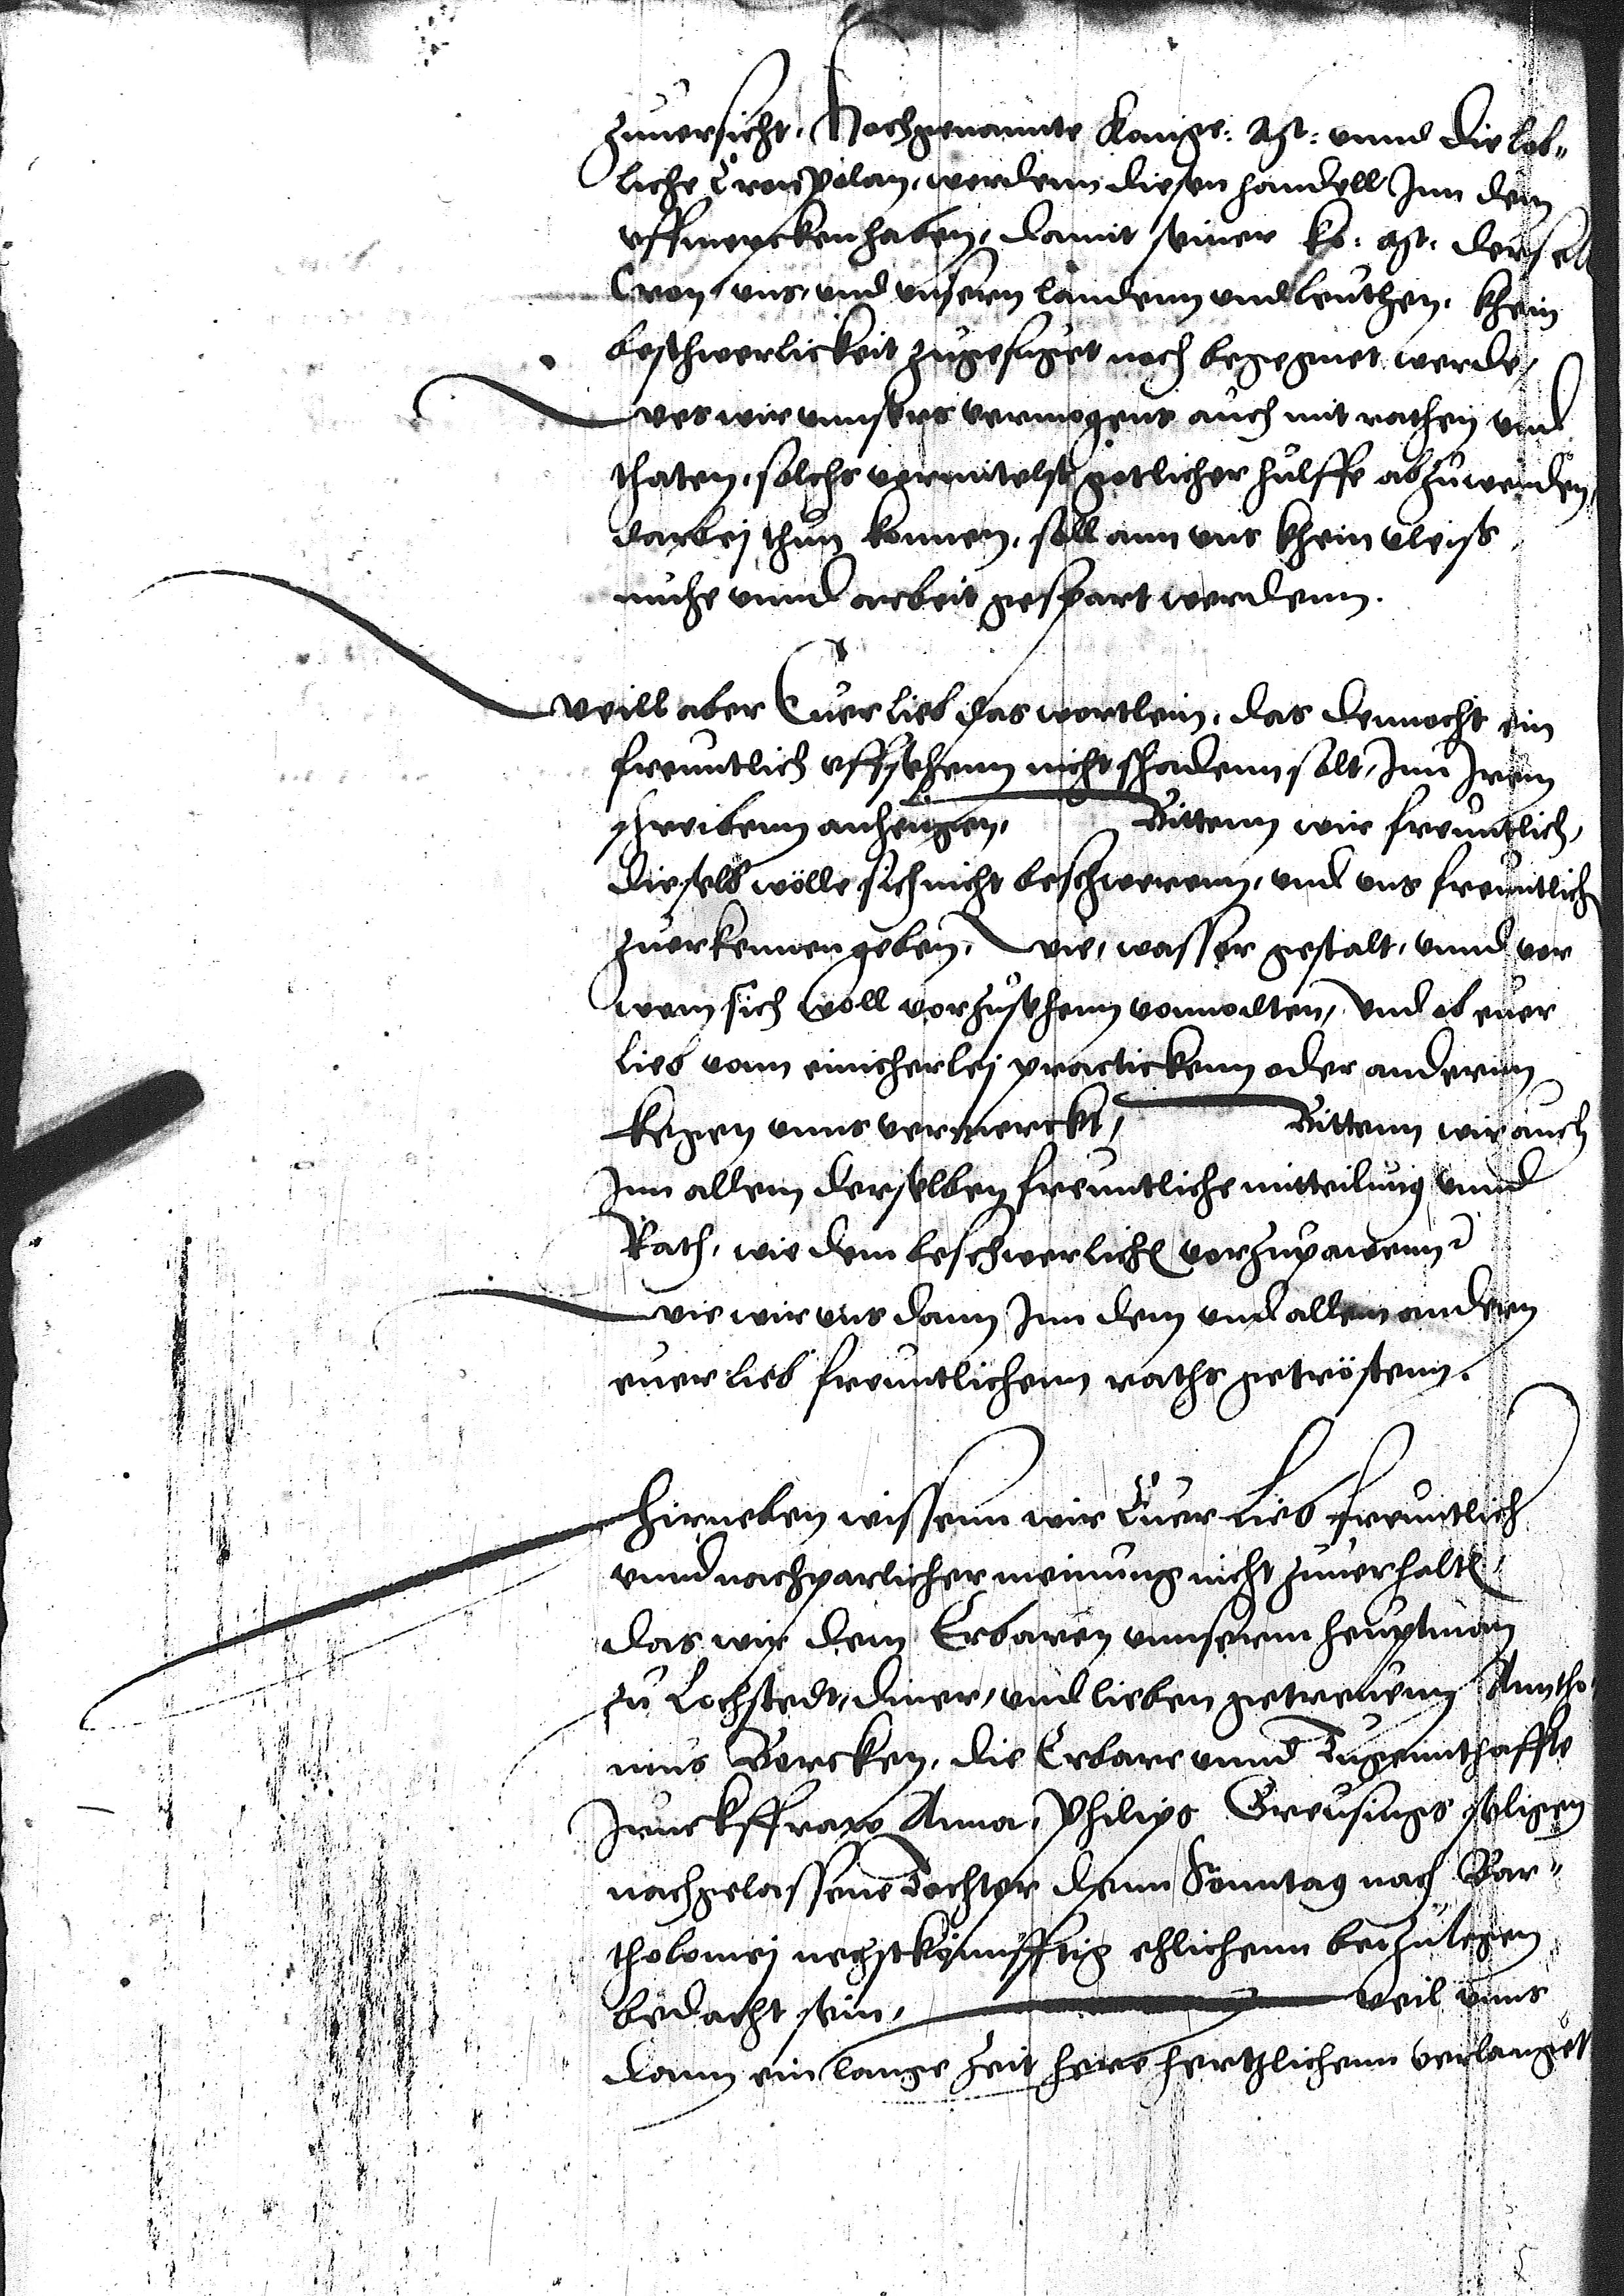 zuuersicht, Hochgenannte Konige: Mt: vnnd die lob„
liche Cron Polan, werdenn diesen handell Jnn dem
vffmercken haben, damit seiner Ko: Mt: derselb
Cron, vns, vnd vnsern landenn vnd leuthen, khein
beschwerlickeit zugefuget noch begegnet werde,
Wes wir vnnsers vermogens auch mit rathen vnd
thaten, solchs vermitelst gotlicher hulffe abzuwenden,
darbej thun konnen, soll ann vns khein vleiß,
muhe vnnd arbeit gespart werdenn.
Weill aber Euer lieb das wortlein, das dennocht ein
freuntlich vffsehenn nicht schadenn solt, Jnn Jrem
schreibenn anhengen, Bittenn wir freuntlich,
dieselb wölle sich nicht beschwerenn, vnd vns freuntlich
zuerkennen geben, Wie, wasser gestalt, vnnd vor
wem sich woll vorzusehenn vonnodten, Vnd ob euer
lieb vonn einicherlej practickenn oder anderm
kegen vnns vermerckt, Bittenn wir auch
Jnn allem derselben freuntliche mitteilung vnnd
Rath, wie dem beschwerlich vorzupawenn
Wie wir vns dann Jnn dem vnd allem anderen
euer lieb freuntlichenn raths getröstenn.
Hirneben wissenn wir Euer Lieb freuntlich
vnnd nachparlicher meinung nicht zuuerhalt,
das wir dem Erbaren vnnserm heuptman
zu Lochstedt, diner, vnd lieben getreuenn Anntho„
nius Borcken, die Erbare vnnd Tugennthaffte
Junckffraw Anna, Philips Greusings seligen
nachgelassene Tochter denn Sonntag nach Bar„
tholomej nechstkunfftig ehlichenn beizulegen
bedacht sein, Weil vnns
dann ein lange Zeit here hertzlichenn verlanget